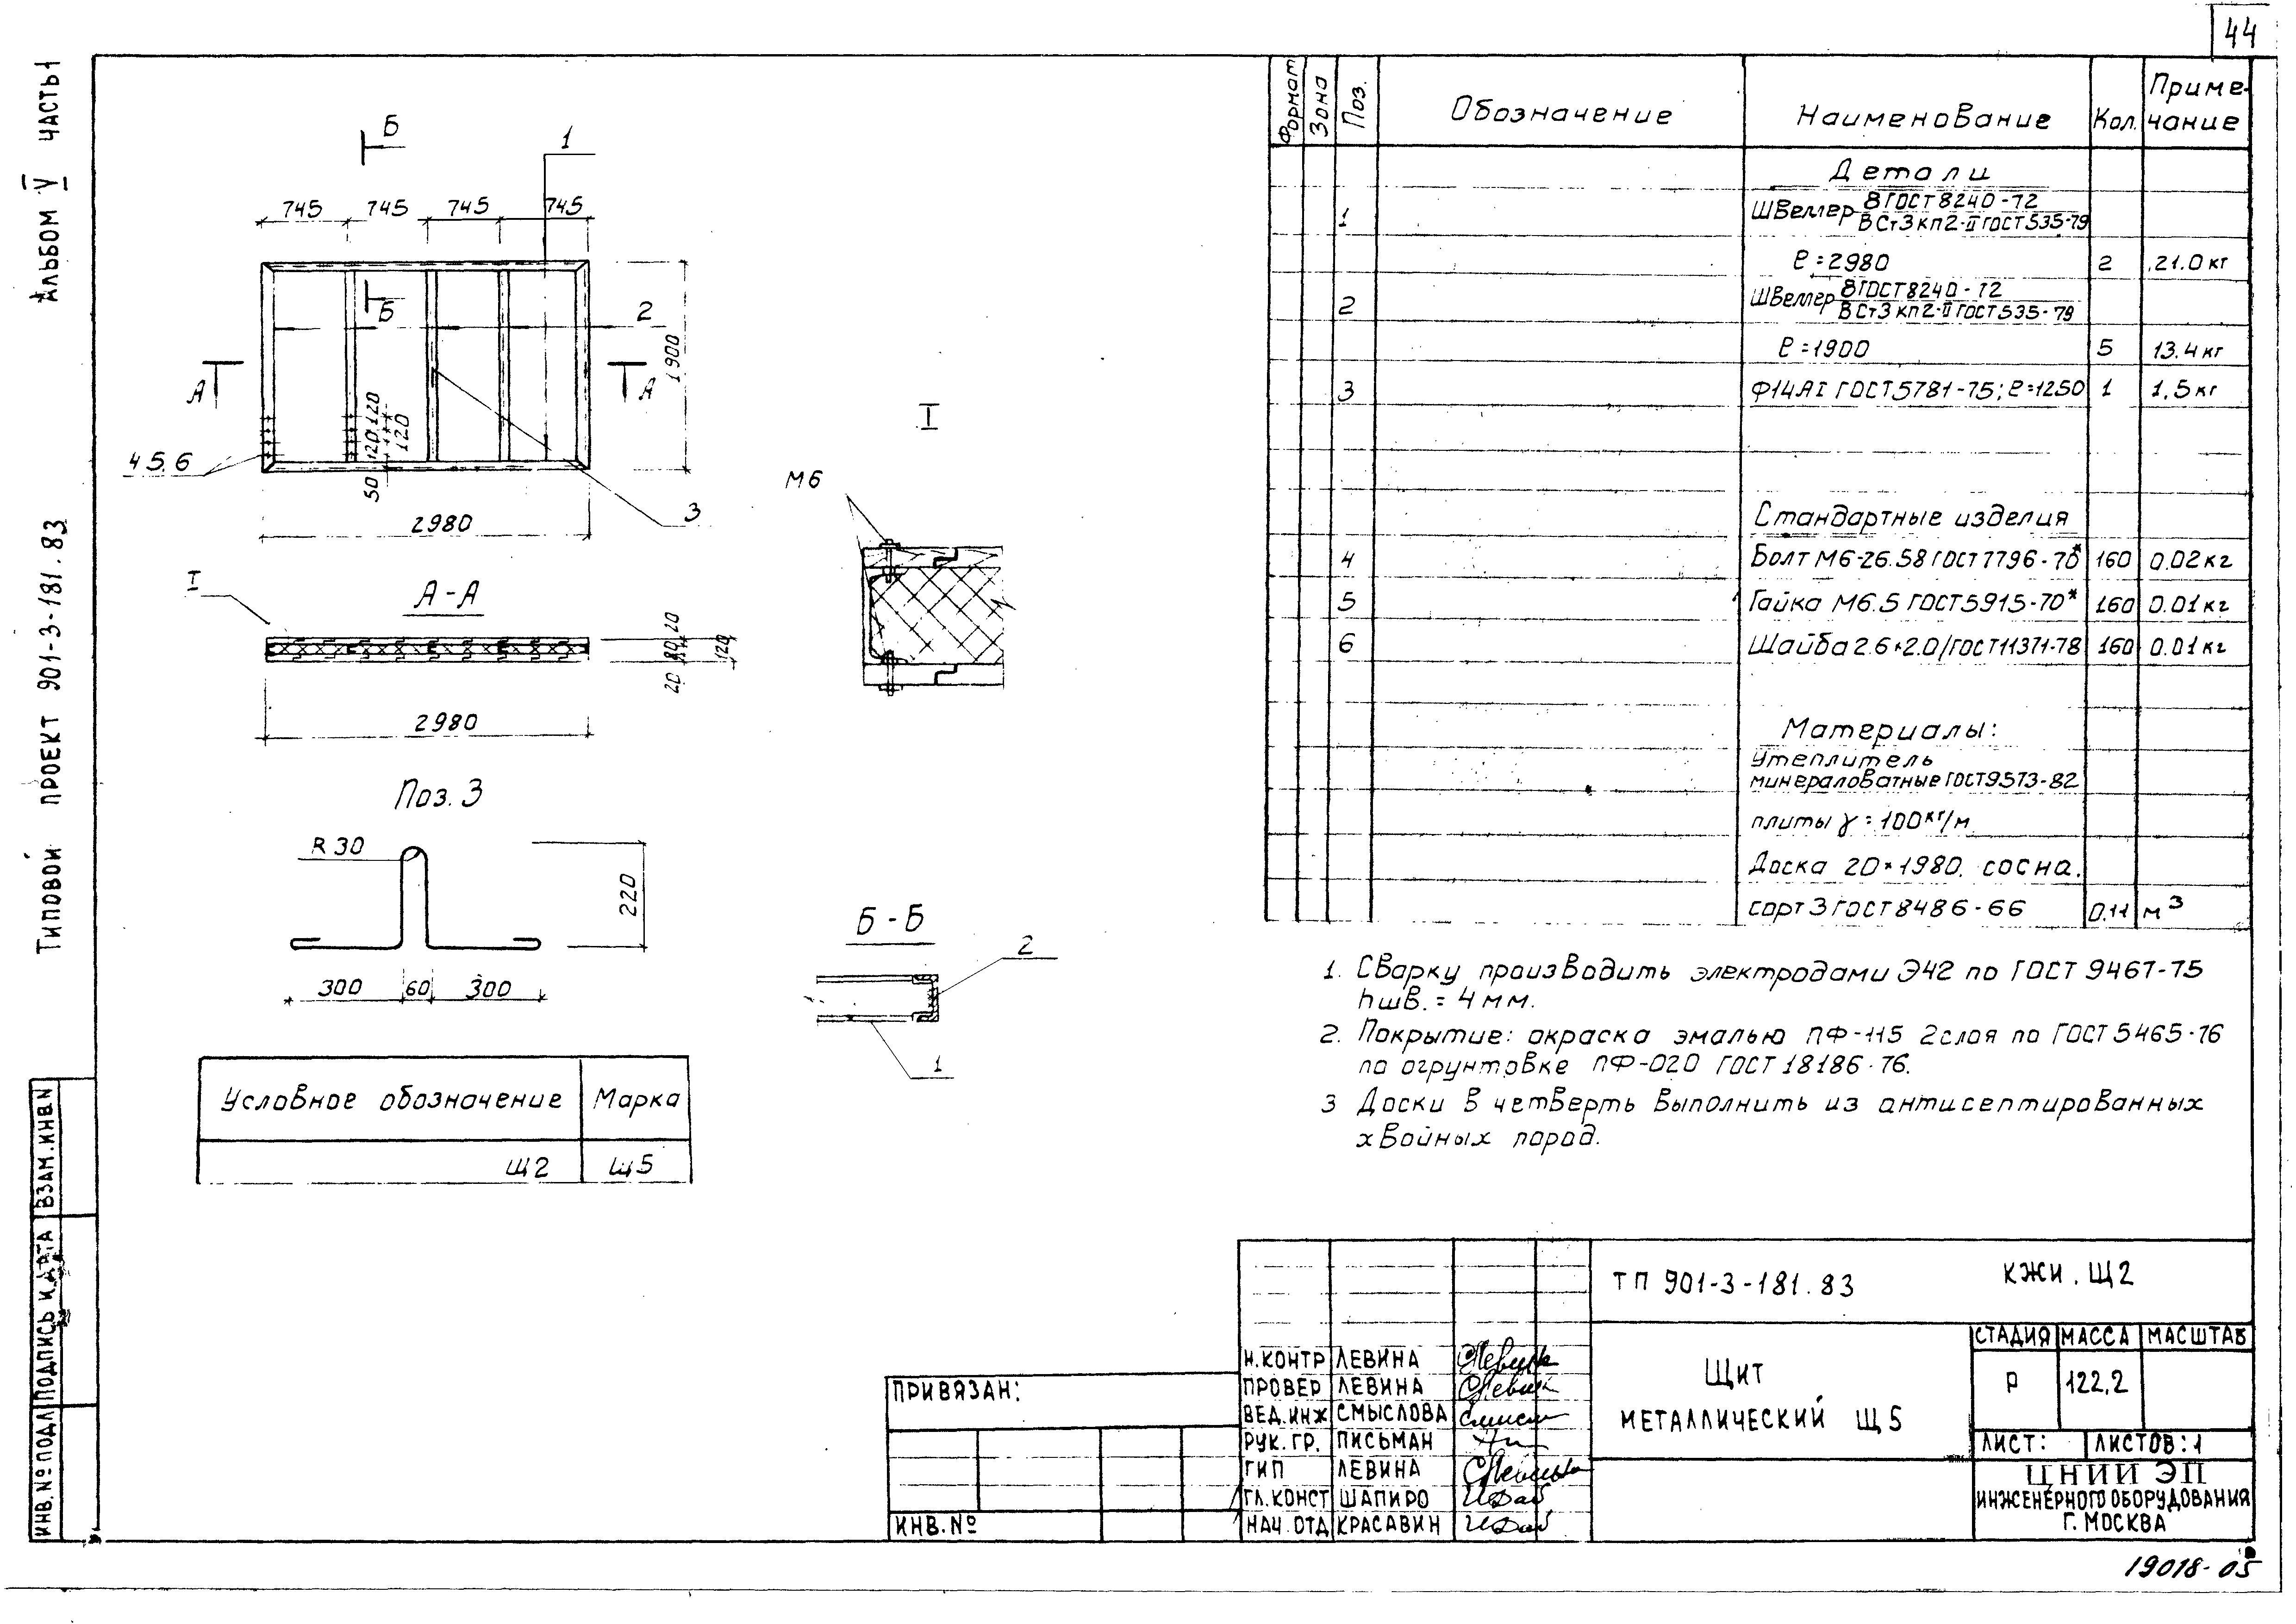 44
Альбом V часть 1
Типовой проект 901-3-181.83
Б
1
745 745 745 745
Б
2
А
А
1900
120 120
120
50
4 5.6
3
2980
I
А-А
20
80
120
20
2980
Поз. 3
R 30
220
300 60 300
I
М6
Б-Б
2
1
Условное обозначение Марка
Щ2 Щ5
Формат Зона Поз. Обозначение Наименование Кол. Приме-
чание
Детали
1 Швеллер 8 ГОСТ 8240-72
ВСт3кп2-II ГОСТ 535-79
ℓ=2980 2 21.0 кг
2 Швеллер 8 ГОСТ 8240-72
ВСт3кп2-II ГОСТ 535-79
ℓ=1900 5 13.4 кг
3 Ф14АI ГОСТ 5781-75; ℓ=1250 1 1.5 кг
Стандартные изделия
4 Болт М6-26.58 ГОСТ 7796-70* 160 0.02 кг
5 Гайка М6.5 ГОСТ 5915-70* 160 0.01 кг
6 Шайба 2.6*2.01 ГОСТ 11371-78 160 0.01 кг
Материалы:
утеплитель
минераловатные ГОСТ 9573-82
плиты γ=100кг/м
Доска 20*1980. сосна.
сорт 3 ГОСТ 8486-66 0.11 м3
1. Сварку производить электродами Э42 по ГОСТ 9467-75
hшв.=4мм.
2. Покрытие: окраска эмалью ПФ-115 2 слоя по ГОСТ 5465-76
по огрунтовке ПФ-020 ГОСТ 18186-76.
3 Доски в четверть выполнить из антисептированных
хвойных пород.
ИНВ.№ПОДЛ ПОДПИСЬ И ДАТА ВЗАМ.ИНВ.N
ПРИВЯЗАН:
ИНВ.№
Н.КОНТР ЛЕВИНА
ПРОВЕР ЛЕВИНА
ВЕД.ИНЖ СМЫСЛОВА
РУК.ГР. ПИСЬМАН
ГИП ЛЕВИНА
ГЛ.КОНСТ ШАПИРО
НАЧ.ОТД КРАСАВИН
ТП 901-3-181.83 КЖИ.Щ2
ЩИТ
МЕТАЛЛИЧЕСКИЙ Щ5
СТАДИЯ МАССА МАСШТАБ
Р 122,2
ЛИСТ: ЛИСТОВ:1
ЦНИИ ЭП
ИНЖЕНЕРНОГО ОБОРУДОВАНИЯ
Г. МОСКВА
19018-05